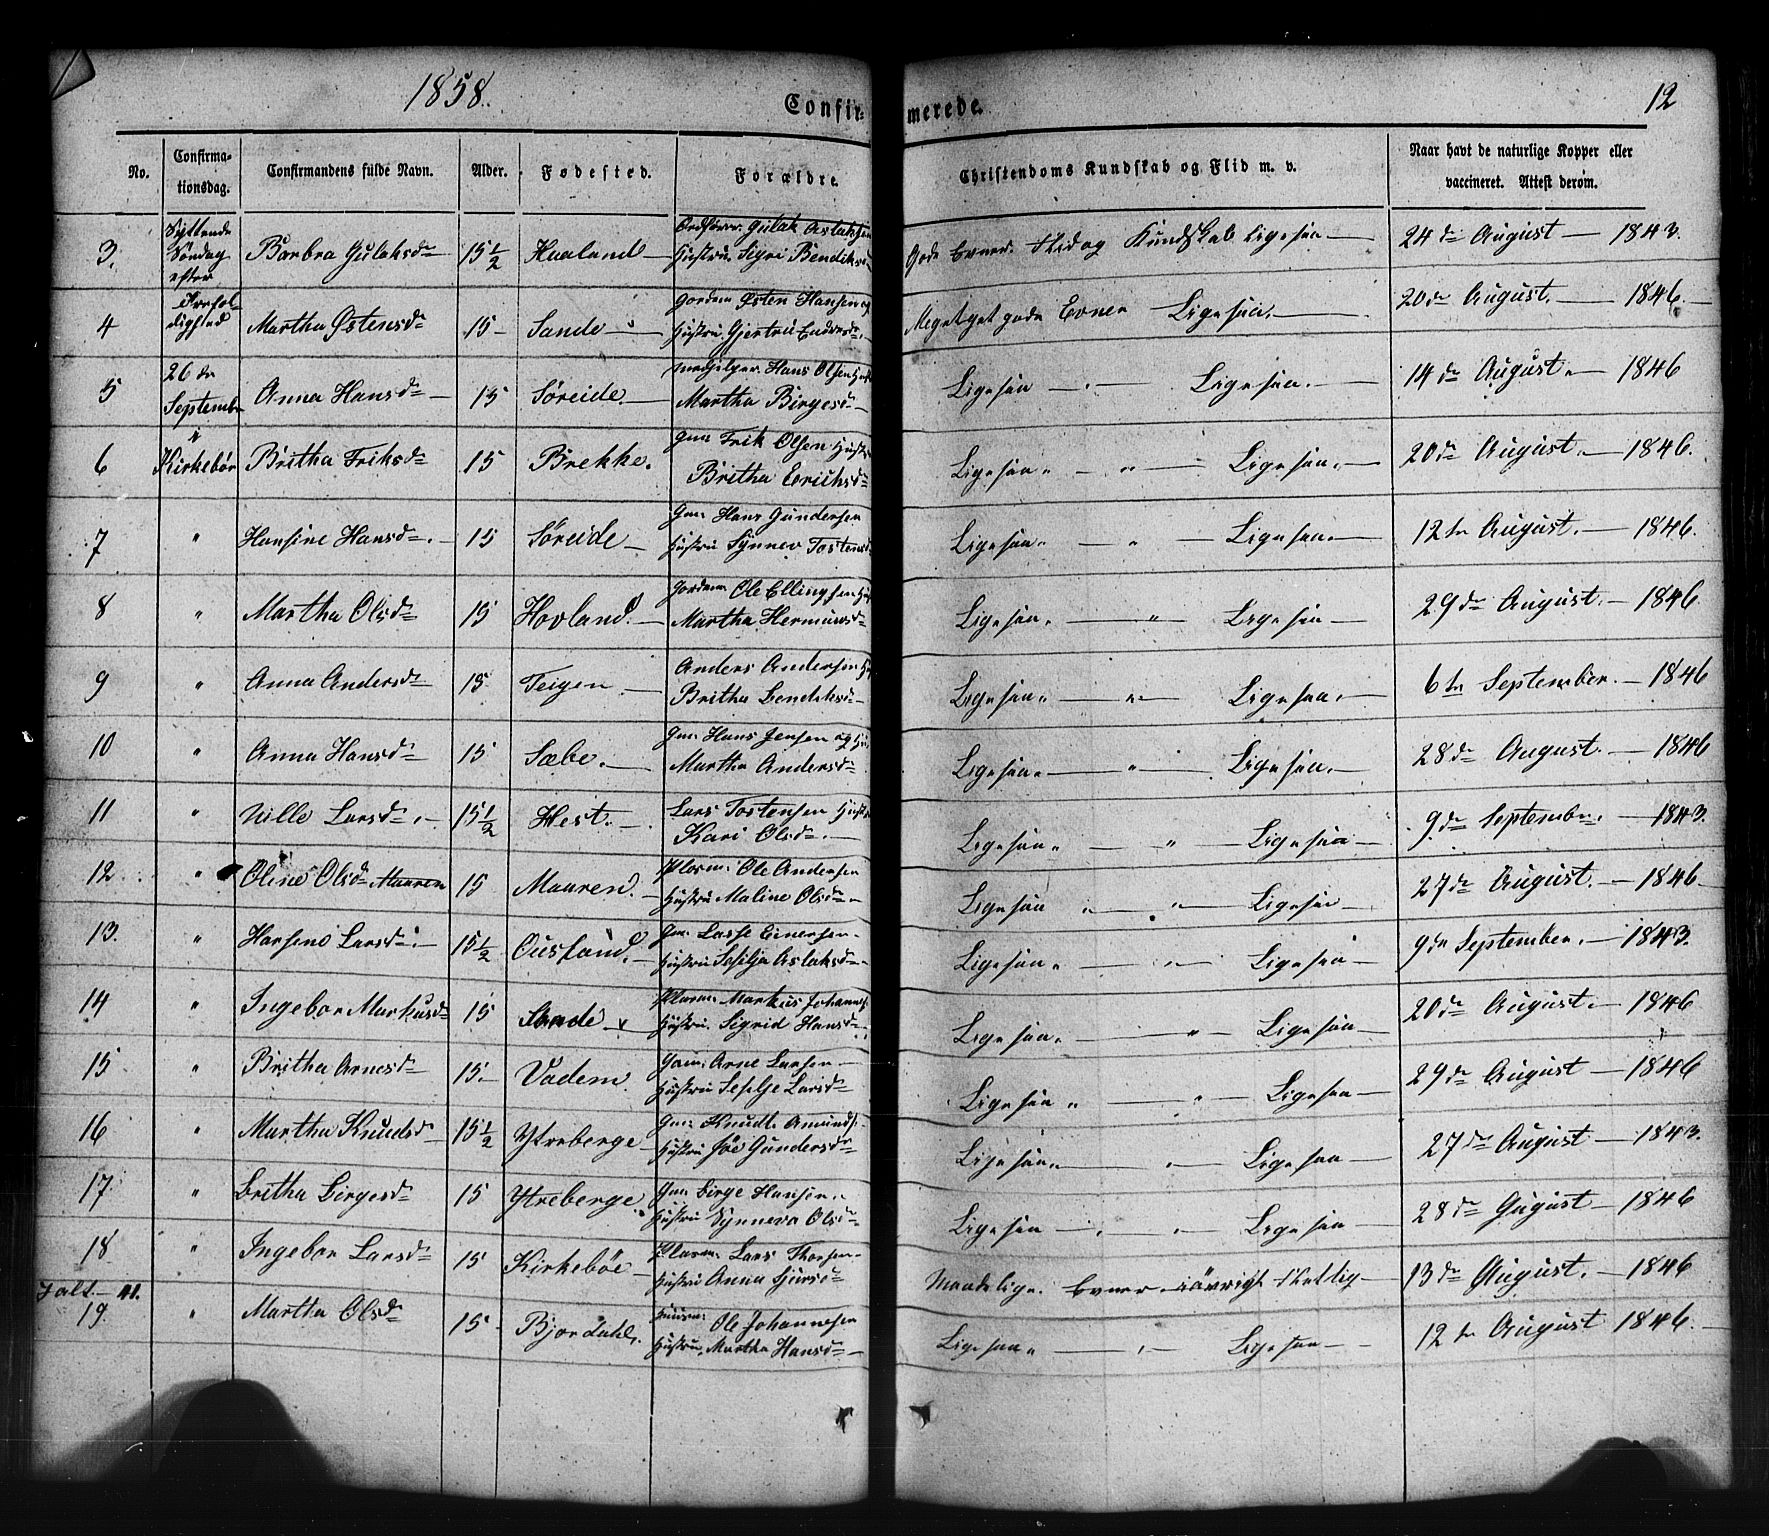 1858.
Confirmerede.
12
No.
Confirmationsdag.
Confirmandens fulde Navn.
Alder.
Fødested.
Forældre.
Christendoms Kundskab og Flid m. v.
Naar havt de naturlige Kopper eller vaccineret. Attest derom.
Syttende Søndag efter Trefoldighed 26de September Kirkebøe
3. Barbra Gulaksd. 15½ Haaland Gulak Aslaksen Hustru Sigri Bendiksd. Gode Evner. Flid og Kundskab ligesaa 24de August 1843.
4 Martha Østensd. 15 Sande Østen Hansen og Hustru Gjertru Endresd. Meget gode Evner Ligesaa. 20de August. 1846.
5 Anna Hansd. 15 Søreide. Hans Olsen Hust Martha Birgesd. Ligesaa Ligesaa. 14de August. 1846
6 " Britha Eriksd. 15 Brekke. Gm: Erik Olsen Hust Britha Eerichsd. Ligesaa. " Ligesaa. 20de August. 1846.
7 " Hansine Hansd. 15 Søreide Gm: Hans Gundersen Hustru Synnev Tostensd. Ligesaa. " Ligesaa. 12te August. 1846.
8 " Martha Olsd. 15 Hovland. Ole Ellingsen Hust Martha Hermansd. Ligesaa. " Ligesaa 29de August. 1846.
9 " Anna Andersd. 15 Teigen Anders Andersen Hust Britha Bendiksd. Ligesaa. " Ligesaa. 6te September. 1846
10 " Anna Hansd. 15 Sæbe. Gm: Hans Jensen og Hu Martha Andersd. Ligesaa. " Ligesaa. 28de August. 1846
11 " Nille Larsd. 15½ Hest. Lars Tostensen Hust Kari Olsd. Ligesaa. " Ligesaa 9de September. 1843.
12 " Oline Olsd. Mauren 15 Mauren. Ole Andersen Hustru Maline Olsd. Ligesaa " Ligesaa 27de August. 1846.
13. " Hansene Larsd. 15½ Ousland. Gm: Lasse Einersen Hustru Sesilja Aslaksd. Ligesaa. " Ligesaa 9de September. 1843.
14 " Ingebor Markusd. 15 Sande Markus Johannes Hustru. Sigrid Hansd. Ligesaa. " Ligesaa 20de August. 1846
15 " Britha Arnesd. 15. Vadem. Arne Larsen Hustru Seselje Larsd. Ligesaa " " Ligesaa 29de August 1846
16 " Martha Knudsd. 15½ Ytreberge Gm: Knudt Amunds. Hustru Gundersd. Ligesaa. " Ligesaa 27de August 1843.
17. " Britha Birgesd. 15 Ytreberge. Gm: Birge Hansen Hustru Synneva Olsd. Ligesaa " Ligesaa 28de August 1846
18 " Ingebor Larsd. 15 Kirkebøe Lars Hustru Anna Ligesaa Maadelige. Evner iövrigt skikkelig 13de August. 1846
Jalt. 41.
19. " Martha Olsd. 15. Bjordahl. Ole Johannesen Hustru. Martha Hansd. Ligesaa. " Ligesaa 12te August 1846.